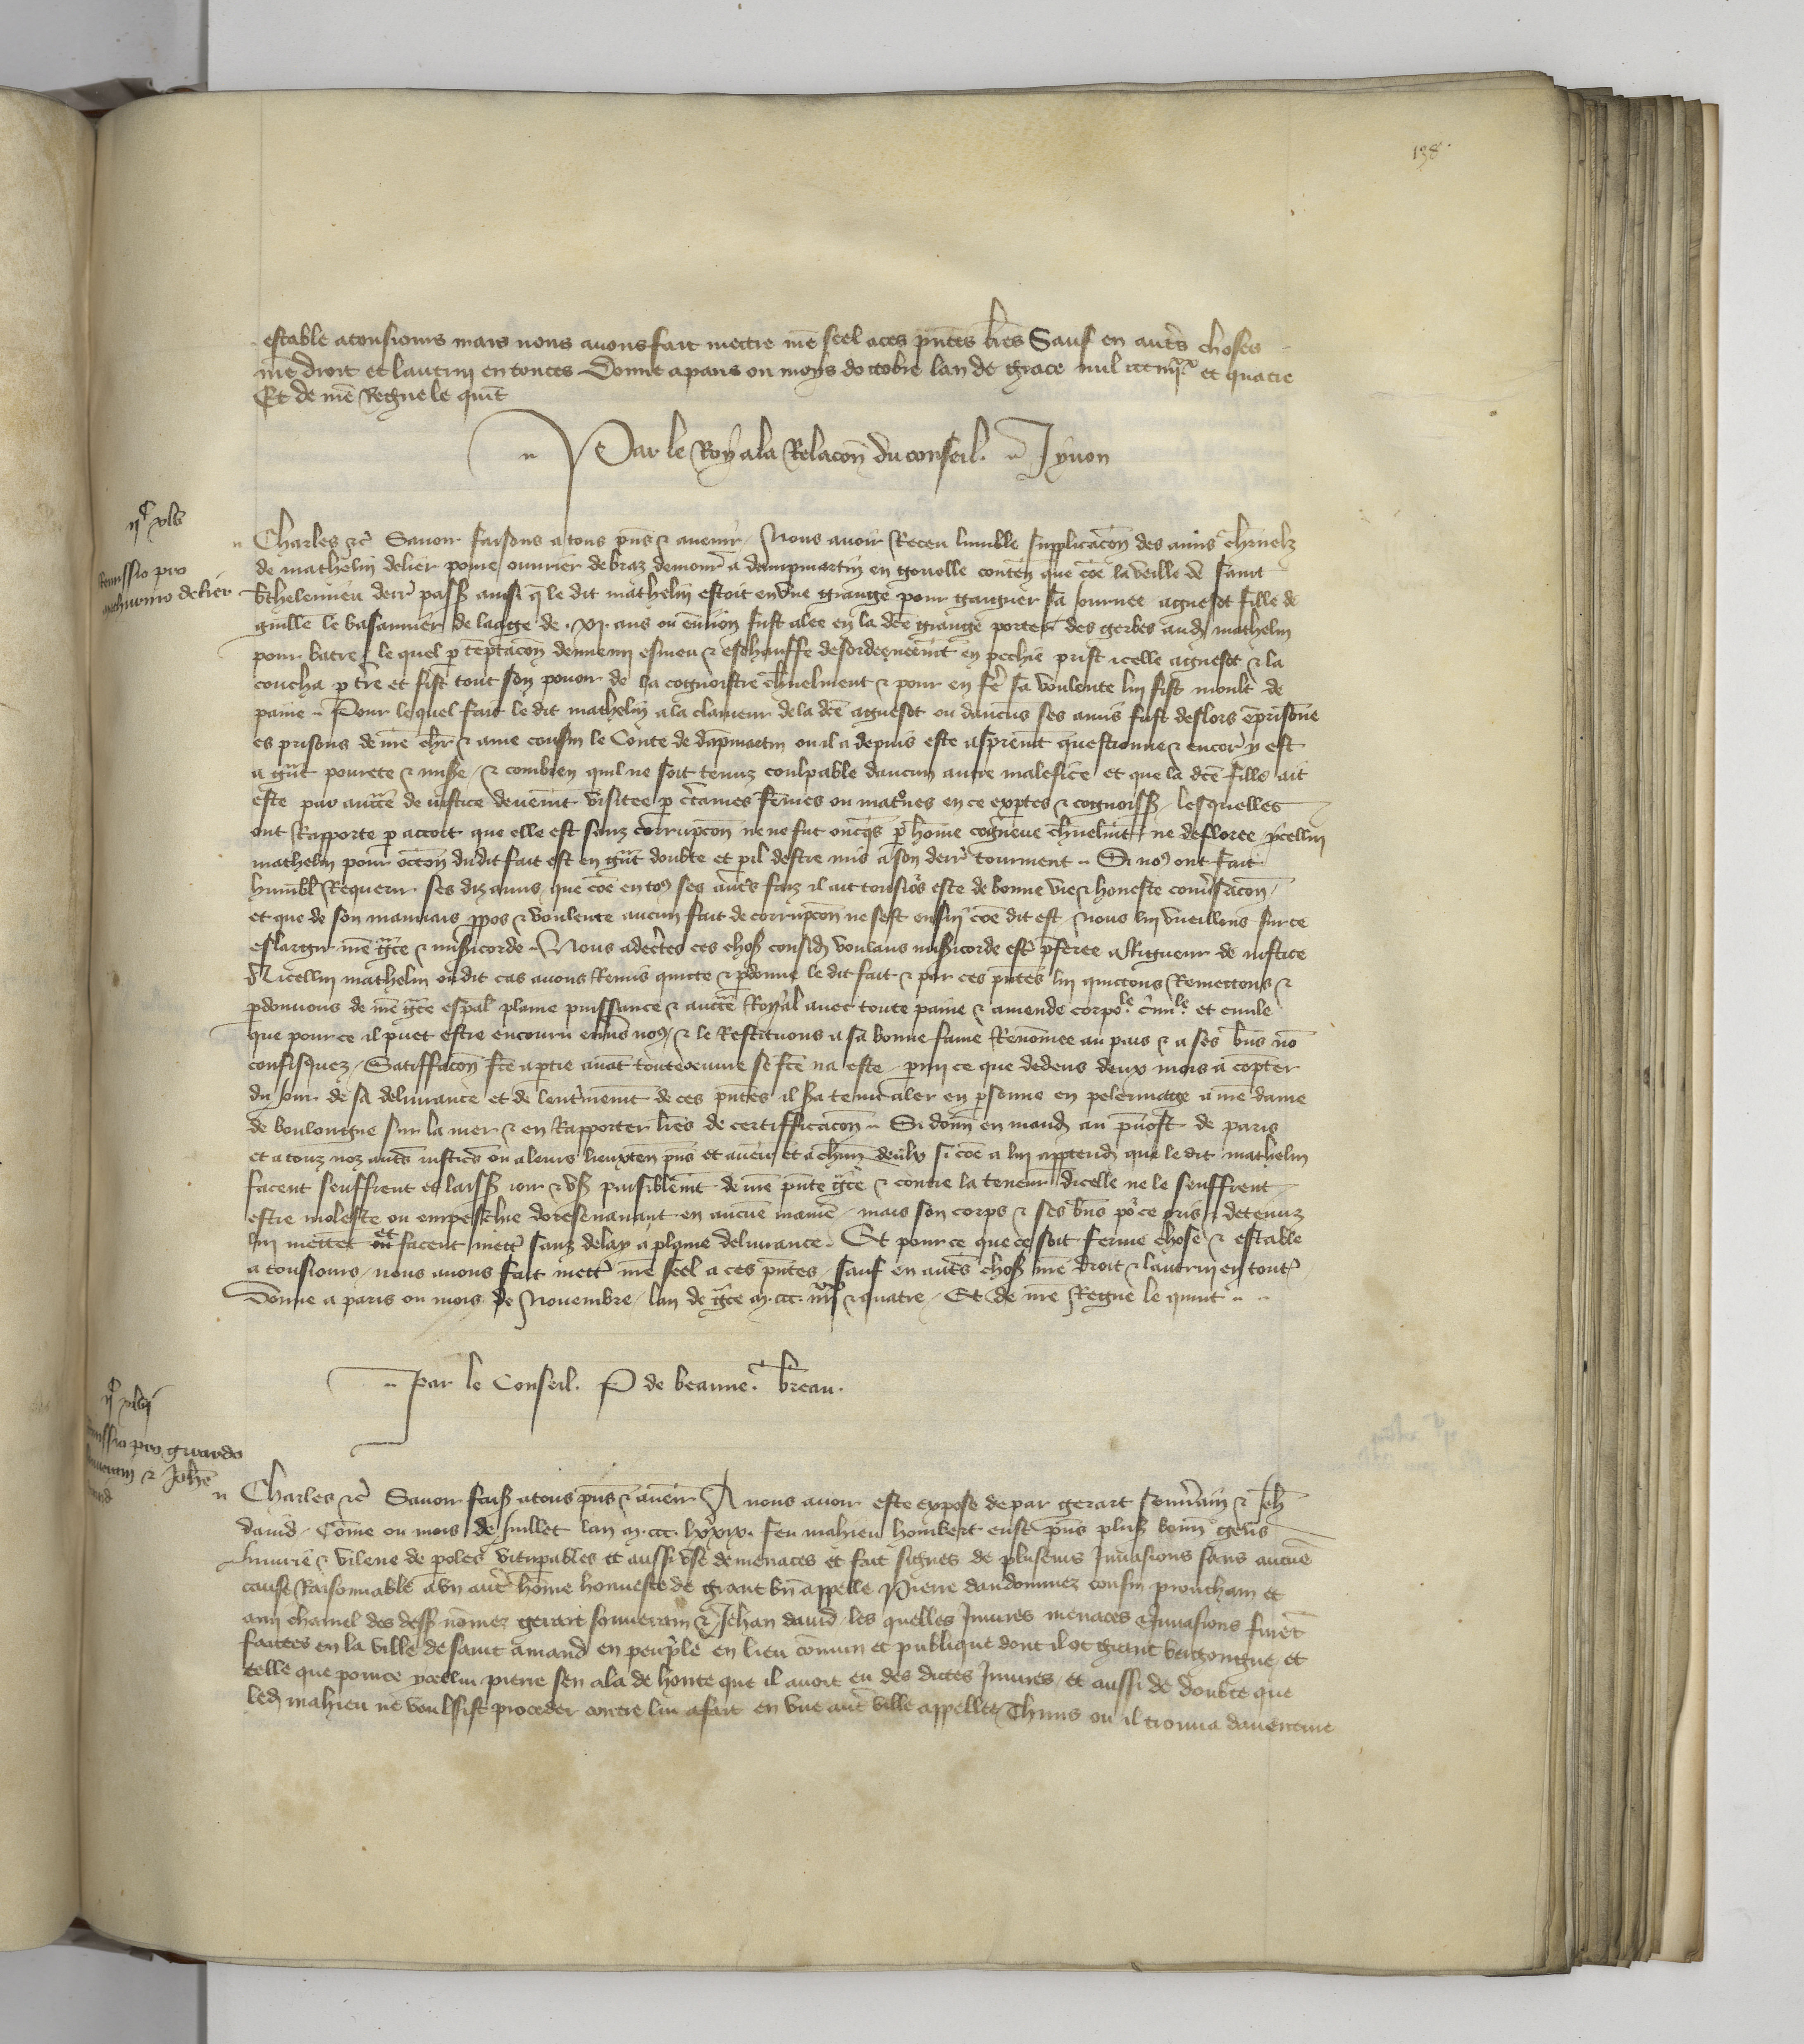 138
estable a tousiours mais nous auons fait mectre nre scel a ces pntes lres Sauf en autres choses
nre droit et lautruy en toutes Donne a paris ou moys doctobre lan de grace mil ccc iiijxx et quatre
Et de nre Regne le quit
Par le Roy a la Relacon du conseil. Jyuon
ijc xlv
Remissio pro
mathurino delier
Charles &c Sauoir faisons a tous pns & auenir Nous auoir Receu lumble supplicacon des amis charnelz
de mathelin delier poure ouurier de braz demour a dampmartin en gouolle conten que coe la veille de saint
bthelemieu derr pass ainsi q le dit mathelin estoit en vne grange pour gaigner sa iournee agnesot fille de
guille le basannier de laage de .vj. ans ou enuiron fust alee en la dce grange porter des gerbes aud mathelin
pour batre le quel p temptacon dennemi esmeu & eschauffe desordeneemt en pechie prist icelle agnesot & la
coucha p tre et fist tout son pouoir de la cognoistre charnelment & pour en fe sa voulente lui fist moult de
paine Pour lequel fait le dit mathelin a la clameur de la dce agnesot ou daucuns ses amis fust deslors eprisone
es prisons de nre chr & ame cousin le Conte de dapmartin ou il a depuis este asprement questionne & encor y est
a grat pourete & mise & combien quil ne soit tenuz coulpable daucun autre malefice et que la dce fille ait
este par aucte de iustice deuemt visitee p ctaines femes ou matnes en ce exptes & cognoiss lesquelles
ont Rapporte p accort que elle est sanz corrupcon ne ne fut oncqs p home cogneue charnelmt ne defloree ycellui
mathelin pour occon dudit fait est en grat doubte et pil destre mis a son derr tourment Si nos ont fait
humbl Requerir ses diz amis que coe en tos ses autrs faiz il ait tousiors este de bonne vie & honeste conusacon
et que de son mauuais ppos & voulente aucun fait de corrupcon ne sest ensui coe dit est nous lui vueillens sur ce
eslargir nre grace & misicorde Nous adectes ces choss consid voulans misicorde est pferee a Rigueur de iustice
A icellui mathelin ou dit cas auons Remis quicte & pdonne le dit fait & par ces pntes lui quictons Remectons &
pdonnons de nre grace espal plaine puissance & aucte Royal auec toute paine & amende corpole cimle et ciuile
que pour ce il puet estre encouru enus nos & le Restituons a sa bonne fame Renomee au pais & a ses bns no
confisquez Satiffacon fce a ptie auat toute euure se fce na este pmi ce que dedens deux mois a copter
du jour de sa deliurance et de lentinemt de ces pntes il sa tenu aler en psonne en pelerinage a nre dame
de boulongne sur la mer & en Rapporter lres de certifficacon Si donn en mand au puost de paris
et a touz noz autrs iustics ou a leurs lieuxten pns et auenir et a chun deulx si coe a lui apptend que le dit mathelin
facent seuffrent et laiss ioir & vs paisiblemt de nre pnte grace & contre la teneur dicelle ne le seuffrent
estre moleste ou empeschie doresenauant en aucune manie mais son corps & ses bns por ce pris & detenuz
lui mettet et facent mettr sanz delay a plaine deliurance Et pour ce que ce soit ferme chose & estable
a tousiours nous auons fait mettr nre scel a ces pntes sauf en autrs choss nre droit & lautrui en tout
Donne a paris ou mois de Nouembre lan de grace m. ccc. iiijxx & quatre Et de nre Regne le quint
Par le Conseil. P de beaune. breau.
ijc xlvj
Remissio pro girardo
souuerain & Johe
dauid
Charles &c Sauoir faiss a tous pns & auenir A nous auoir este expose de par gerart souuerain & Jeh
dauid Come ou mois de Juillet lan m. ccc. lxxix. feu mahieu hombert eust pns pluss bonn gens
Iniurie & vilene de poles vitupables et aussi vse de menaces et fait signes de pluseurs Inuasions sans aucune
cause Raisonnable a vn autre home honneste de grant bn appelle Pierre daudonnez cousin prouchain et
ami charnel des dess nomez gerart souuerain & Jehan dauid les quelles Iniures menaces & Inuasions furet
faictes en la ville de saint amand en peuple en lieu comun et publique dont il ot grant vergongne et
telle que pour ce ycellui pierre sen ala de honte que il auoit eu des dictes Iniures et aussi de doubte que
led mahieu ne voulsist proceder contre lui a fait en vne autre ville appellee Thuns ou il trouua dauenture